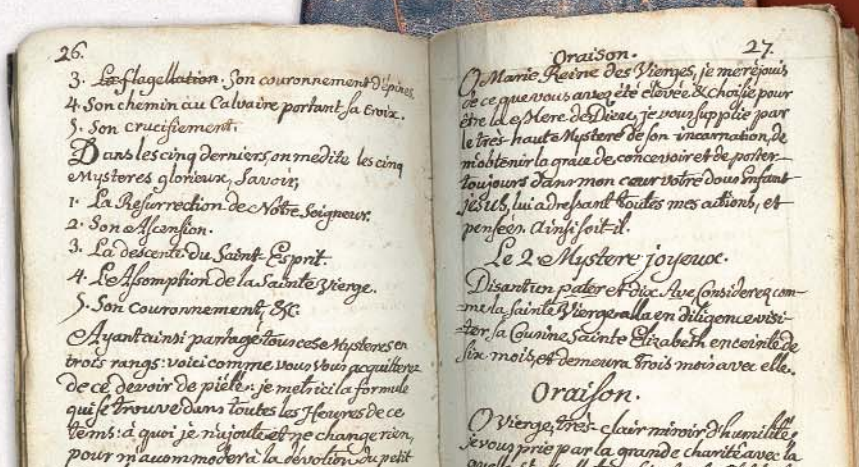 26.
3. La flagellation. Son couronnement d'épines.
4. Son chemin au Calvaire portant sa Croix.
5. Son crucifiement.
Dans les cinq derniers, on medite les cinq
Mysteres glorieux, Savoir,
1. La Resurrection de Nôtre Seigneur.
2. Son Ascension.
3. La descente du Saint Esprit.
4. L'Assomption de la Sainte Vierge.
5. Son couronnement, &c.
Ayant ainsi partagé tous ces Mysteres en
trois rangs: voici comme vous vous acquitterez
de ce devoir de piété: je mets ici la formule
qui se trouve dans toutes les Heures de ce
tems: à quoi je n'ajoute et ne change rien,
pour m'accommoder à la dévotion du petit
27.
Oraison.
O Marie, Reine des Vierges, je me réjouis
de ce que vous avez été élevée & choisie pour
être la Mere de Dieu, je vous supplie par
le très-haut Mystere de son incarnation, de
m'obtenir la grace de concevoir et de porter
toujours dans mon cœur votre doux Enfant
JESUS, lui adressant toutes mes actions, et
pensées. Ainsi soit-il.
Le 2 Mystere joyeux.
Disant un pater et dix Ave Considerez com-
-me la sainte Vierge alla en diligence visi-
-ter sa Cousine Sainte Elizabeth enceinte de
six mois, et demeura trois mois avec elle.
Oraison.
O Vierge, très-clair miroir d'humilité,
je vous prie par la grande charité avec la